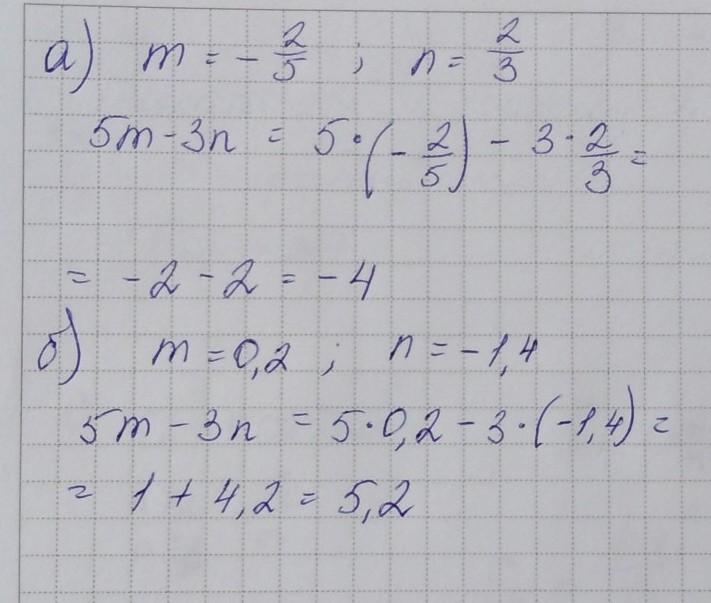 а) m = - 2/5 ; n = 2/3
5m - 3n = 5·(- 2/5) - 3·2/3 =
= -2 - 2 = -4
б) m = 0,2 ; n = -1,4
5m - 3n = 5·0,2 - 3·(-1,4) =
= 1 + 4,2 = 5,2